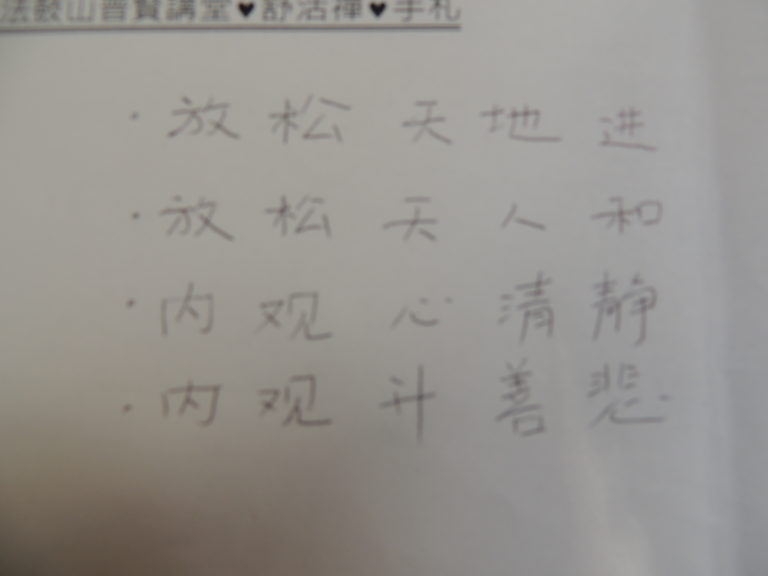 法鼓山普賢講堂♥舒活禪♥手札
· 放松天地进
· 放松天人和
· 内观心清静
· 内观升善悲